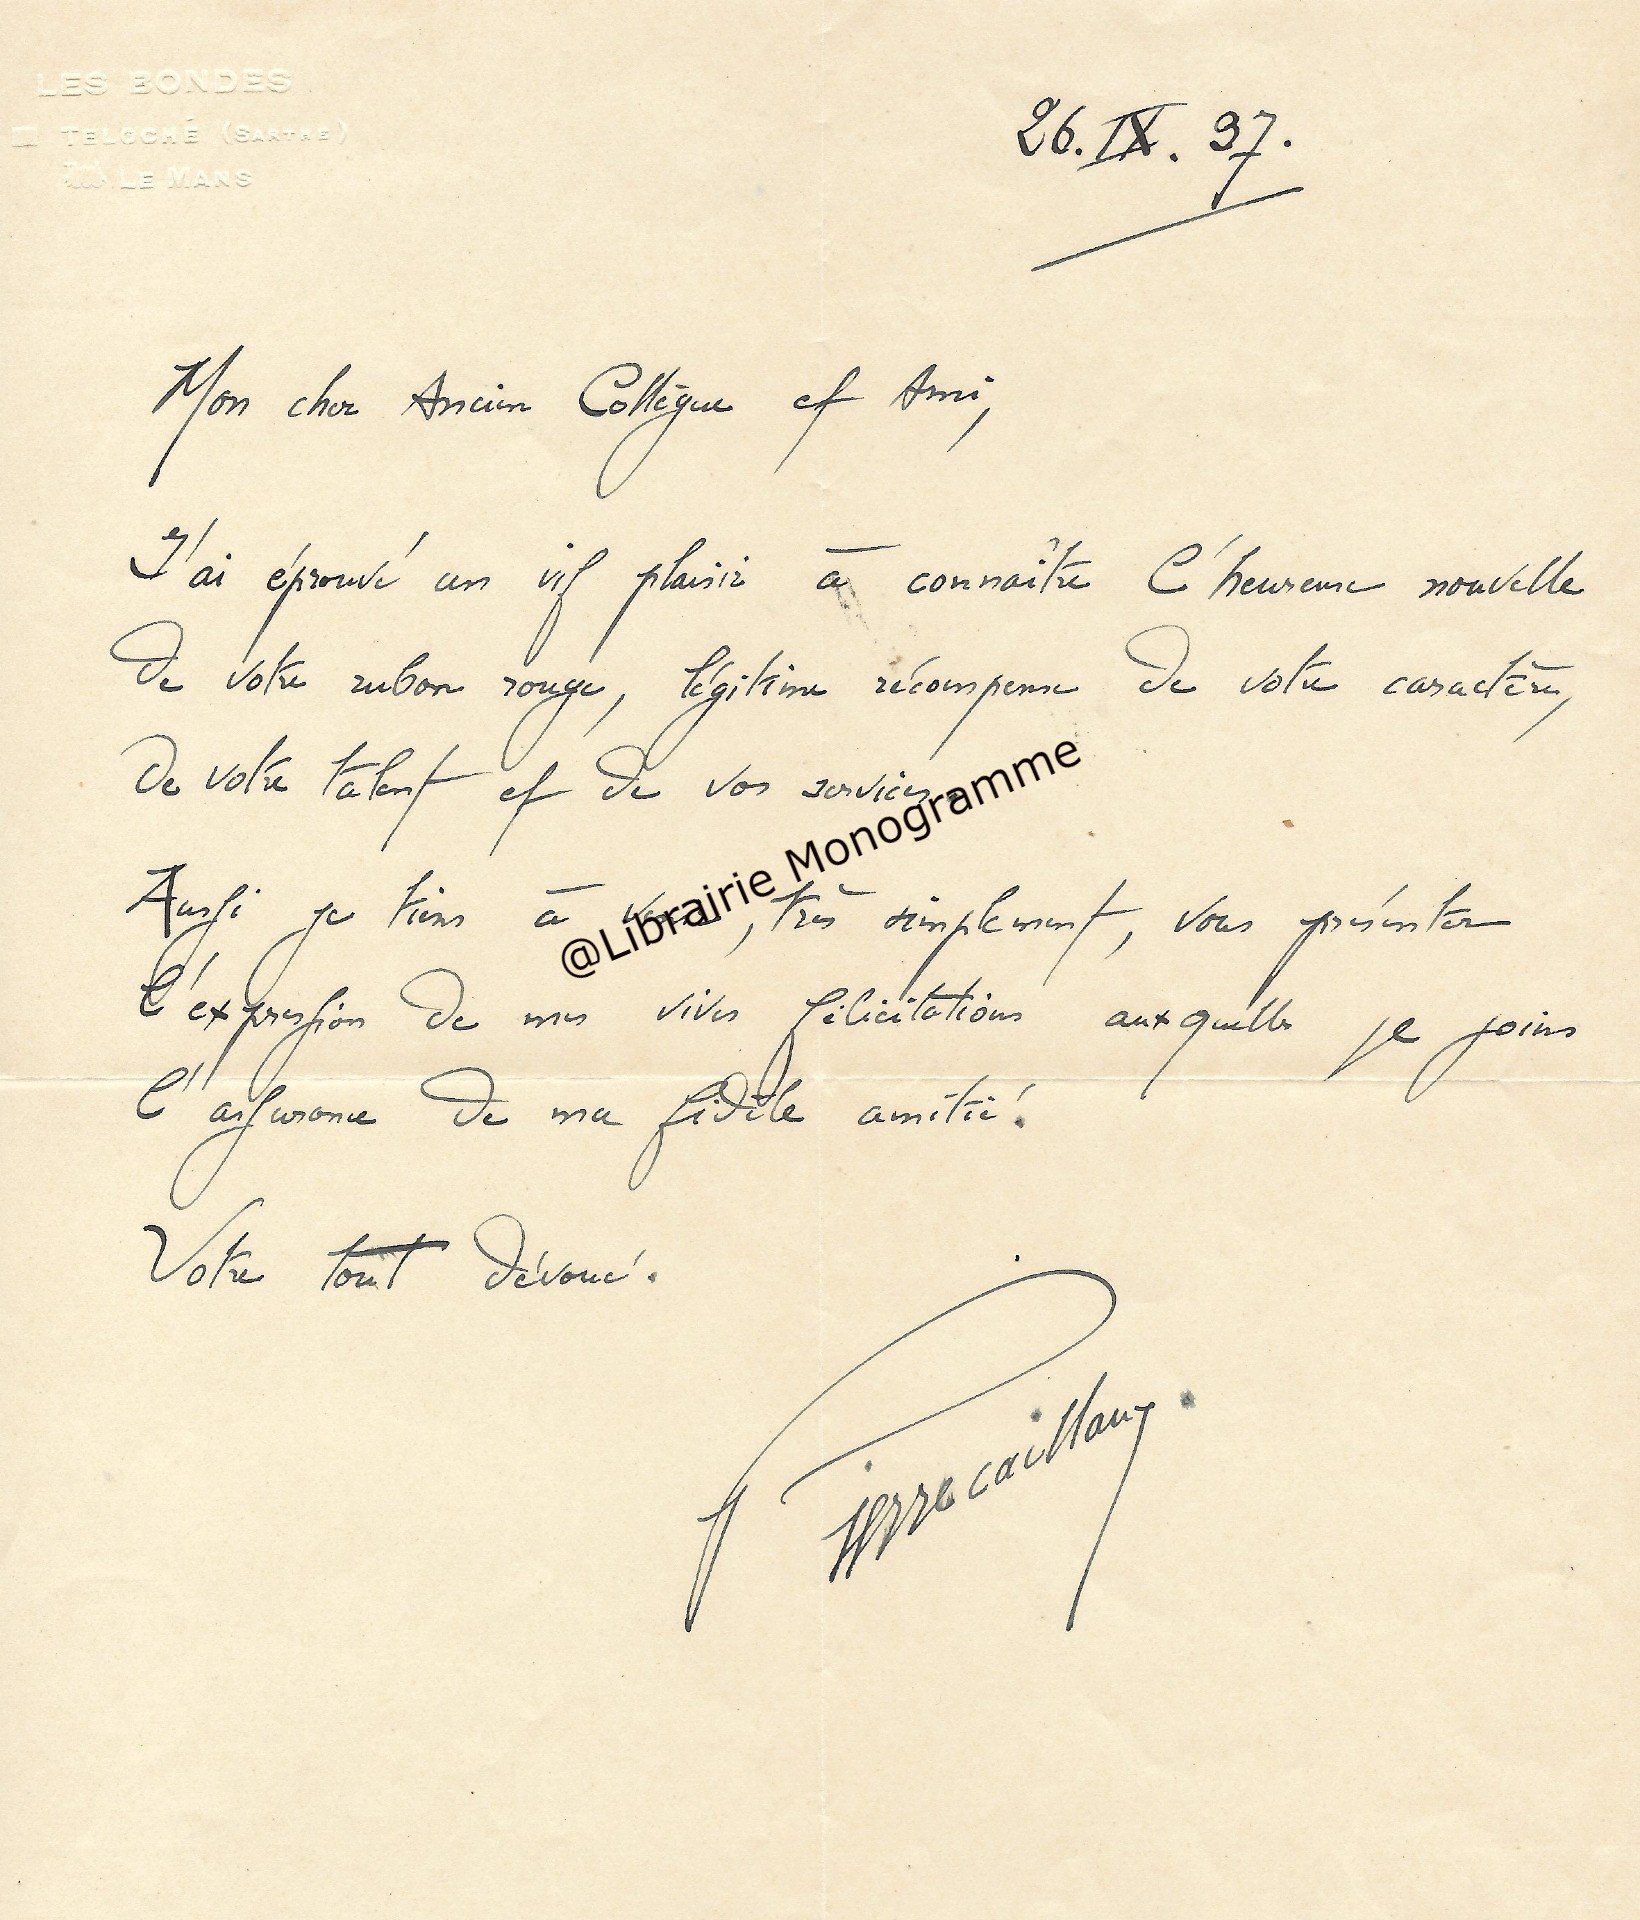 LES BONDES
TELOCHÉ (SARTHE)
LE MANS
26.IX.37.
Mon cher Ancien Collègue et Ami,
J'ai éprouvé un vif plaisir à connaître l'heureuse nouvelle
de votre ruban rouge, légitime récompense de votre caractère,
de votre talent et de vos services.
Aussi je tiens à venir, très simplement, vous présenter
l'expression de mes vives félicitations auxquelles je joins
l'assurance de ma fidèle amitié.
Votre tout dévoué.
Pierre Caillaux.
@Librairie Monogramme